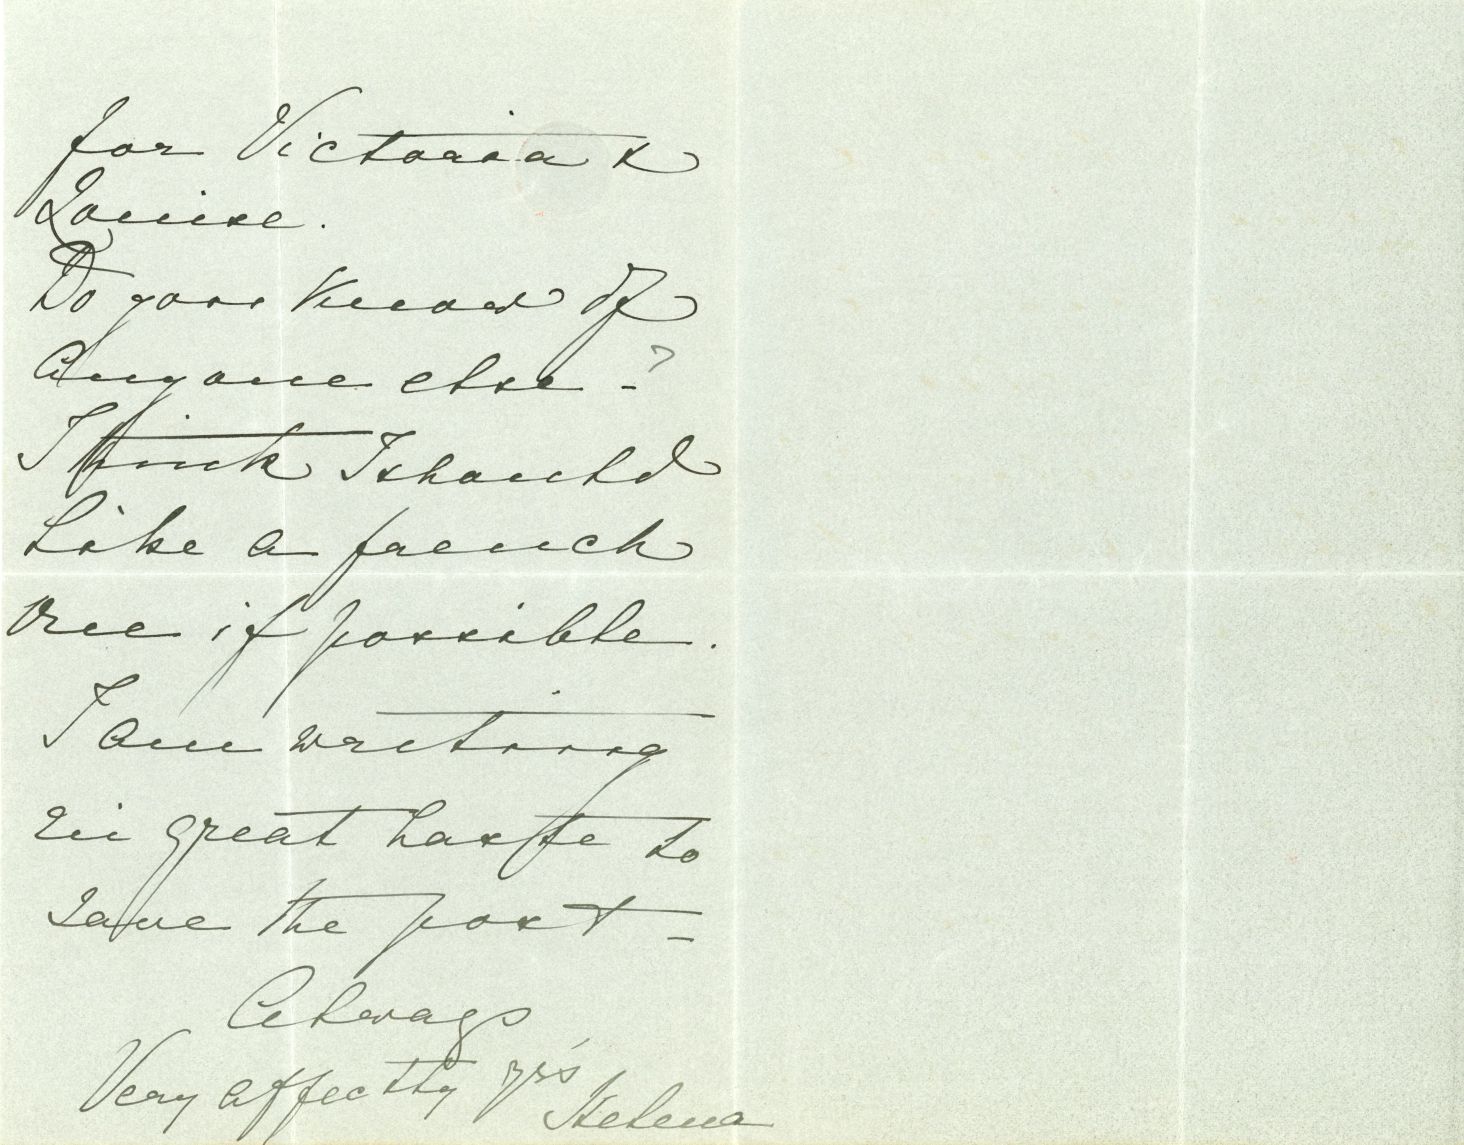 for Victoria &
Louise.
Do you know of
anyone else -?
I think I should
like a french
one if possible.
I am writing
in great haste to
save the post -
Always
Very affectly yrs
Helena